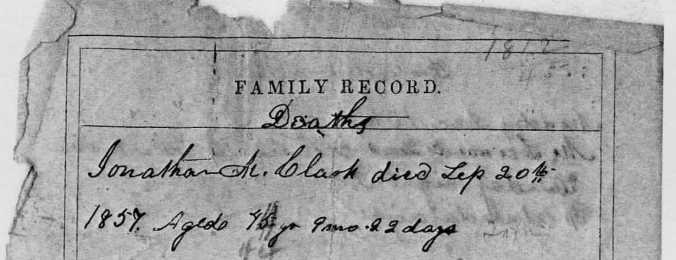 1812
FAMILY RECORD.
Deaths
Jonathan M. Clark died Sep 20th
1857. Aged 45 yr 9 mo. 22 days